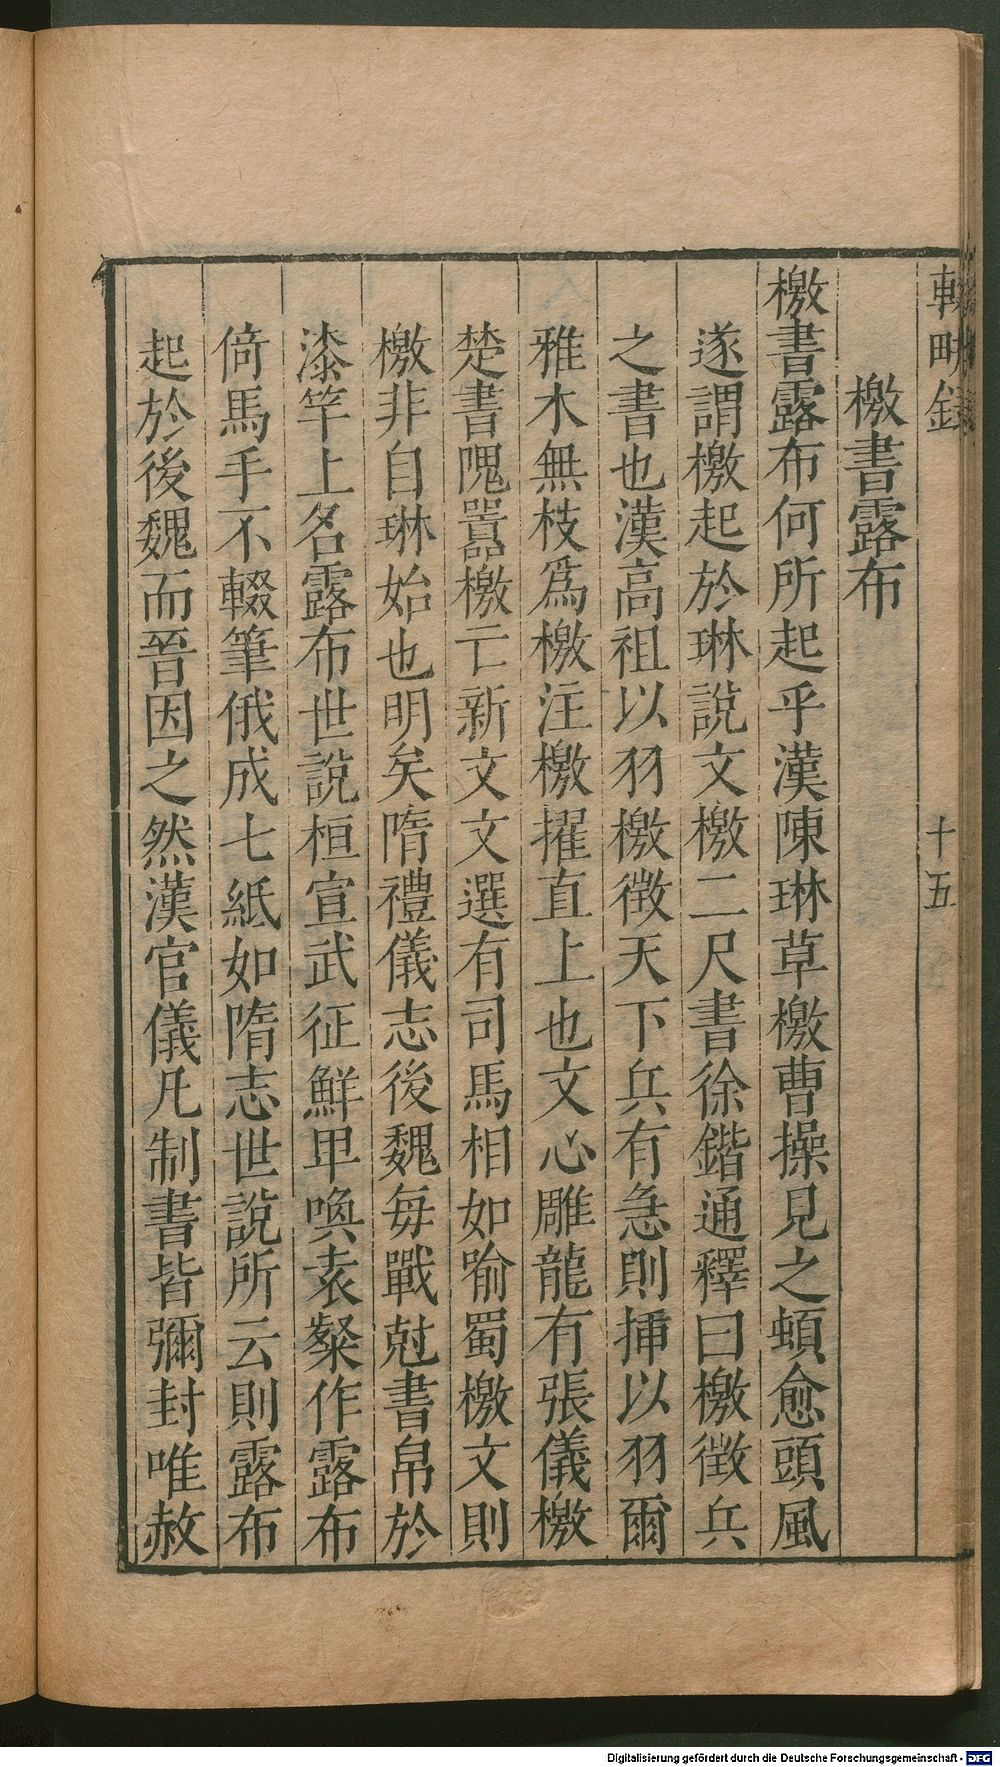 輟畊録
十五
檄書露布
檄書露布何所起乎漢陳琳草檄曹操見之頓愈頭風
遂謂檄起於琳說文檄二尺書徐鍇通釋曰檄徵兵
之書也漢高祖以羽檄徵天下兵有急則揷以羽爾
雅木無枝爲檄注檄擢直上也文心雕龍有張儀檄
楚書隗囂檄亡新文文選有司馬相如喻蜀檄文則
檄非自琳始也明矣隋禮儀志後魏每戰尅書帛於
漆竿上名露布世說桓宣武征鮮卑喚袁粲作露布
倚馬手不輟筆俄成七紙如隋志世說所云則露布
起於後魏而晉因之然漢官儀凡制書皆彌封唯赦
Digitalisierung gefördert durch die Deutsche Forschungsgemeinschaft - DFG